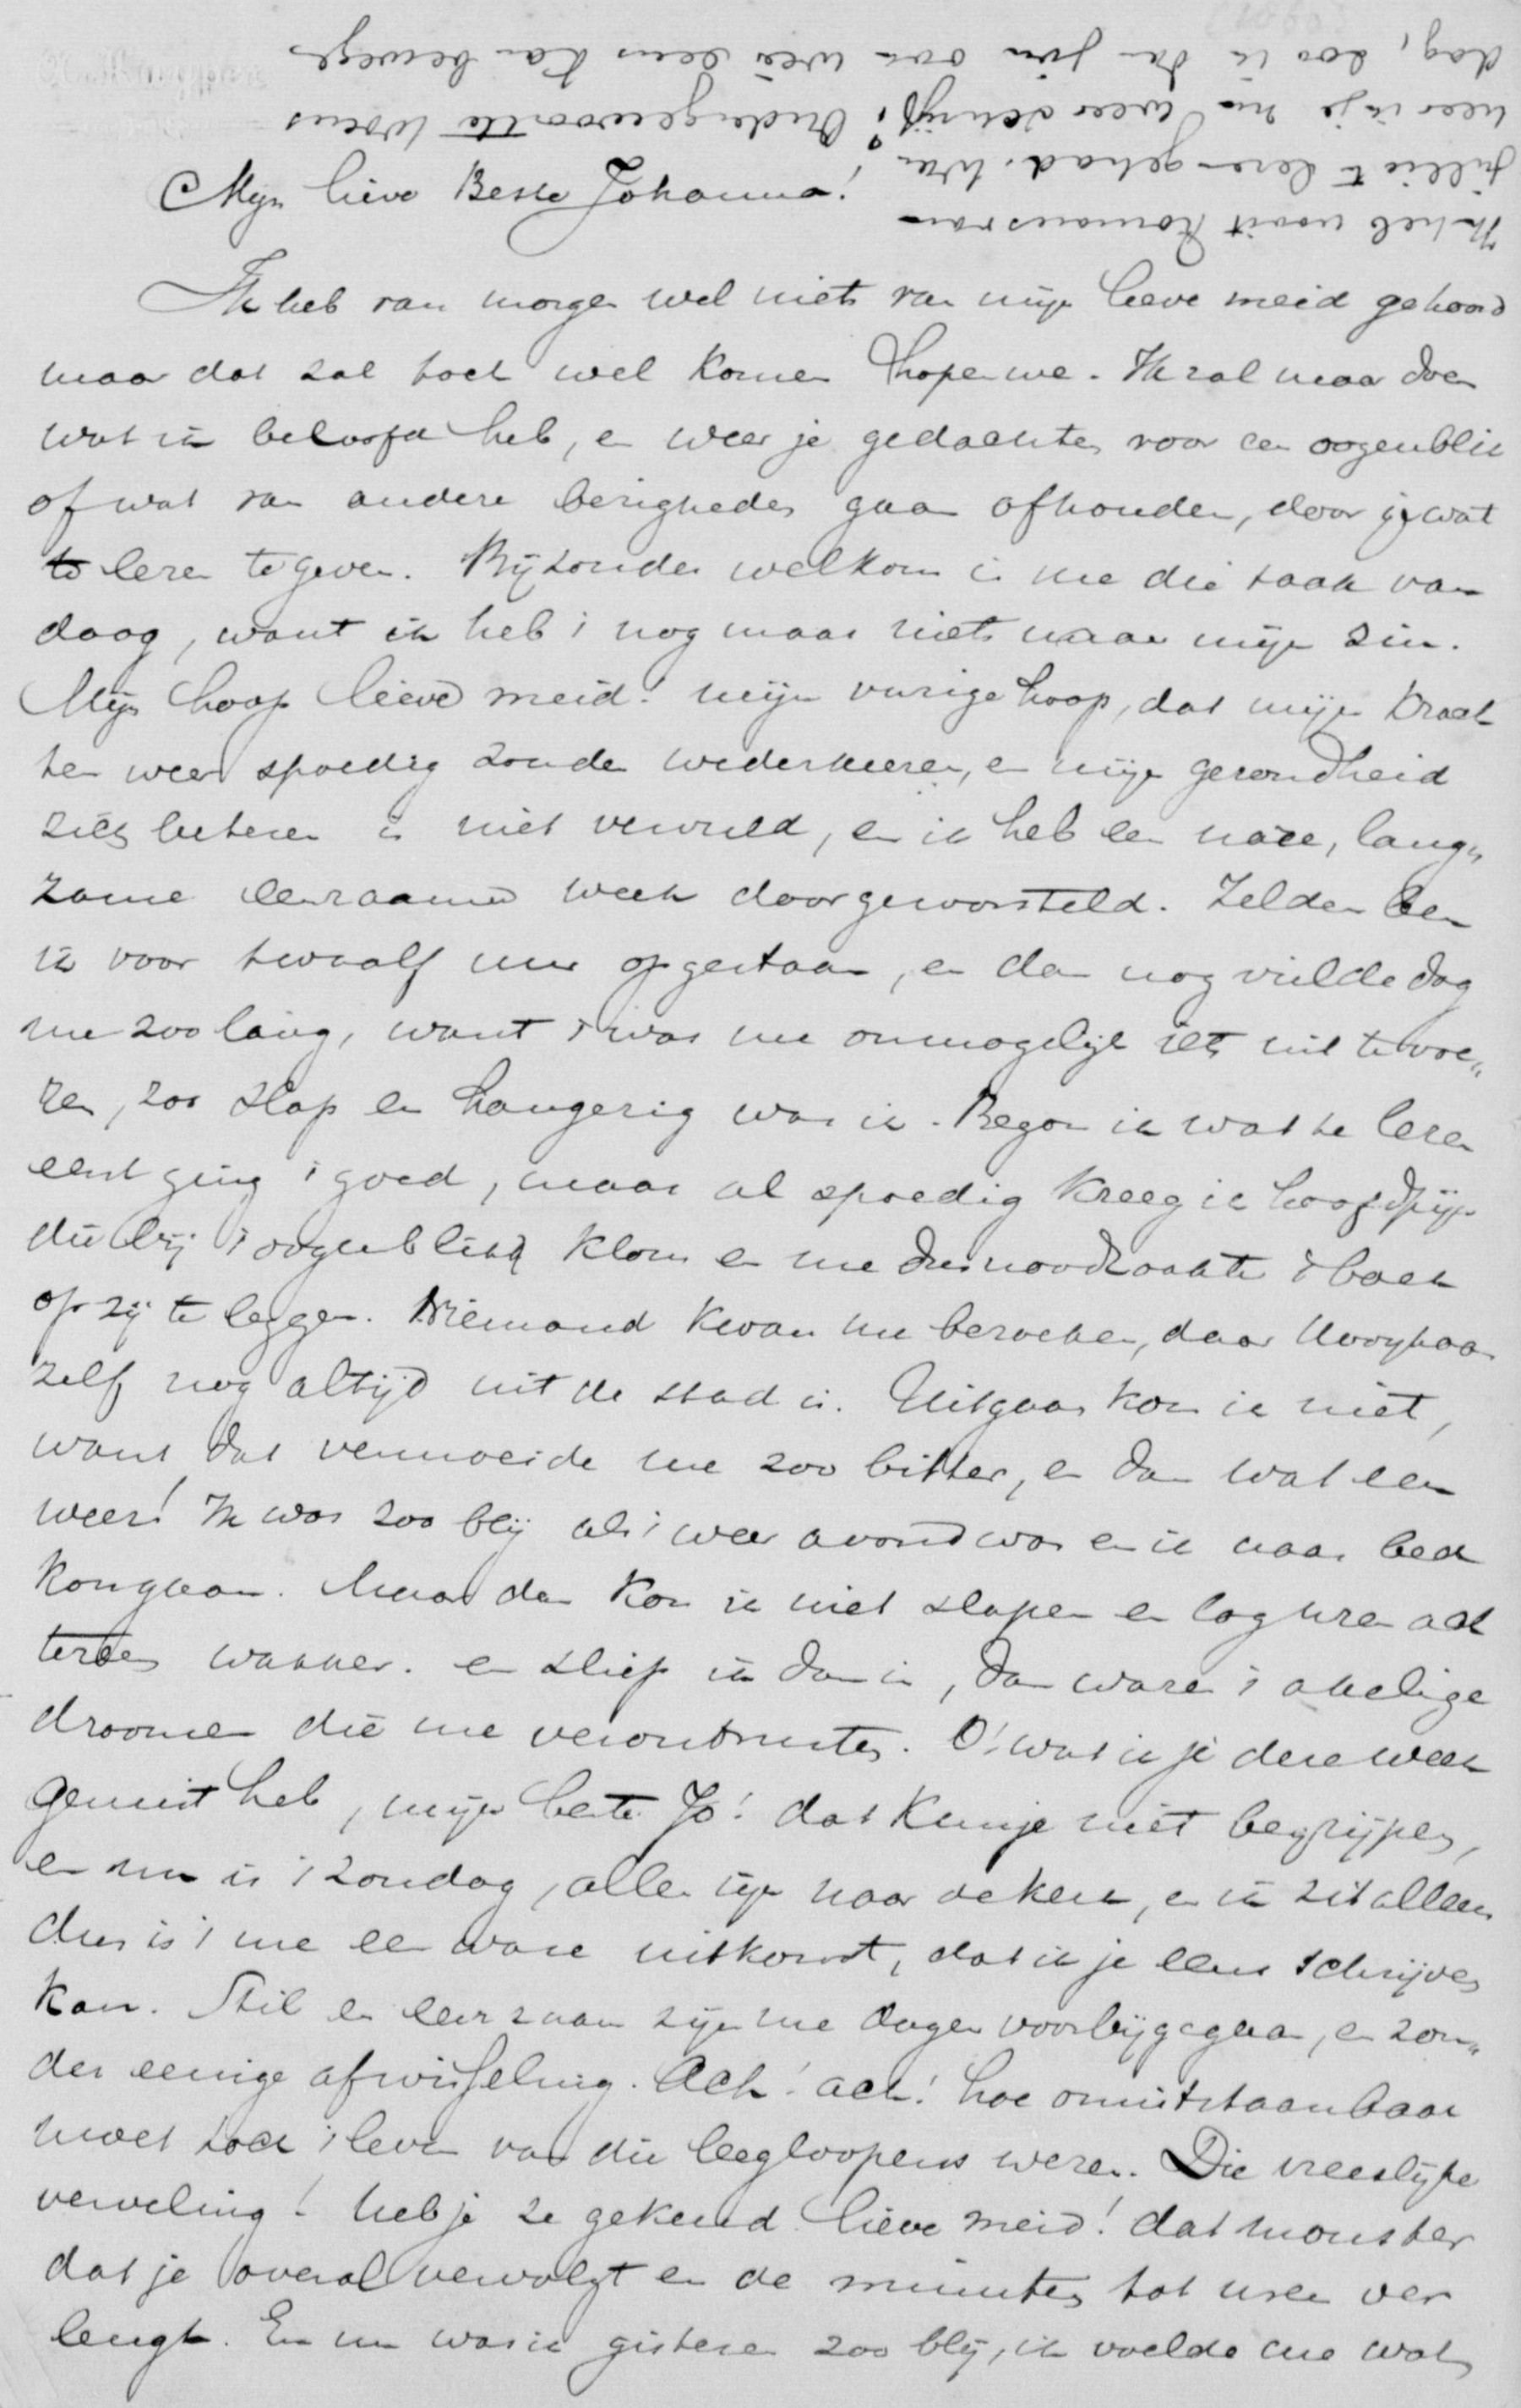 Mijn lieve Beste Johanna!
Ik heb van morgen wel niets van mijn lieve meid gehoord
maar dat zal toch wel komen hopen we. Ik zal maar doen
wat ik beloofd heb, en weer je gedachten voor een oogenblik
of wat van andere bezigheden gaan afhouden, door je wat
te lezen te geven. Bijzonder welkom is me die taak van
daag, want ik heb 't nog maar niets naar mijn zin.
Mijn hoop lieve meid! mijn vurige hoop, dat mijn krach
ten weer spoedig zouden wederkeeren, en mijn gezondheid
zich beteren is niet vervuld, en ik heb een nare, lang„
zame eenzaame week doorgeworsteld. Zelden ben
ik voor twaalf uur opgestaan, en dan nog viel de dag
me zoo lang, want 't was me onmogelijk iets uit te voe„
ren, zoo slap en hangerig was ik. Begon ik wat te lezen
eerst ging 't goed, maar al spoedig kreeg ik hoofdpijn
die bij 't oogenblik klom en me dus noodzaakte 't boek
op zij te leggen. Niemand kwam me bezoeken, daar Nooyhaas
zelf nog altijd uit de stad is. Uitgaan kon ik niet,
want dat vermoeide me zoo bitter, en dan wat een
weer! Ik was zoo blij als 't weer avond was en ik naar bed
kon gaan. Maar dan kon ik niet slapen en lag uren ach
tereen wakker. en sliep ik dan in, dan waren 't akelige
droomen die me verontrustten. O! wat ik je deze week
gemist heb, mijn beste Jo! dat kun je niet begrijpen,
en nu is 't Zondag, allen zijn naar de kerk, en ik zit alleen
dus is 't me een ware uitkomst, dat ik je eens schrijven
kan. Stil en eenzaam zijn me dagen voorbijgegaan, en zon„
der eenige afwisseling. Ach! ach! hoe onuitstaanbaar
moet toch 't leven van die leegloopers wezen. Die vreeslijke
verveling! heb je ze gekend lieve meid! dat monster
dat je overal vervolgt en de minuten tot uren ver
lengt. En nu was ik gisteren zoo blij, ik voelde me wat
Ik heb nooit Romans van
jullie te lezen gehad. Wan
neer ik je nu weer schrijf? Ordergewoonte woens
dag, zoo ik dan fin ook weer eens kan bewegen